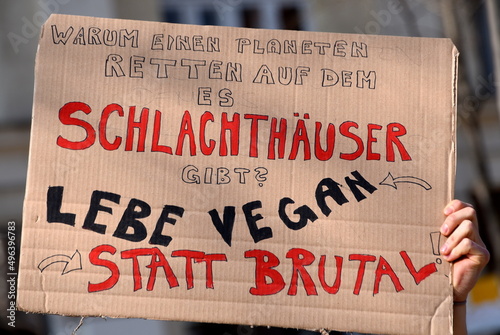 WARUM EINEN PLANETEN
RETTEN AUF DEM
ES
SCHLACHTHÄUSER
GIBT?
LEBE VEGAN
STATT BRUTAL!
Adobe Stock | #496396783